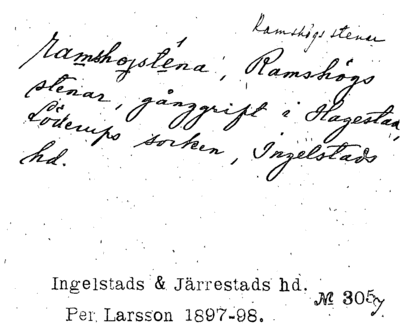 Ramshögs stenar
ramshojstena, Ramshögs
stenar, gånggrift i Hagestad,
Löderups socken, Ingelstads
hd.
Ingelstads & Järrestads hd.
Per Larsson 1897-98. № 305